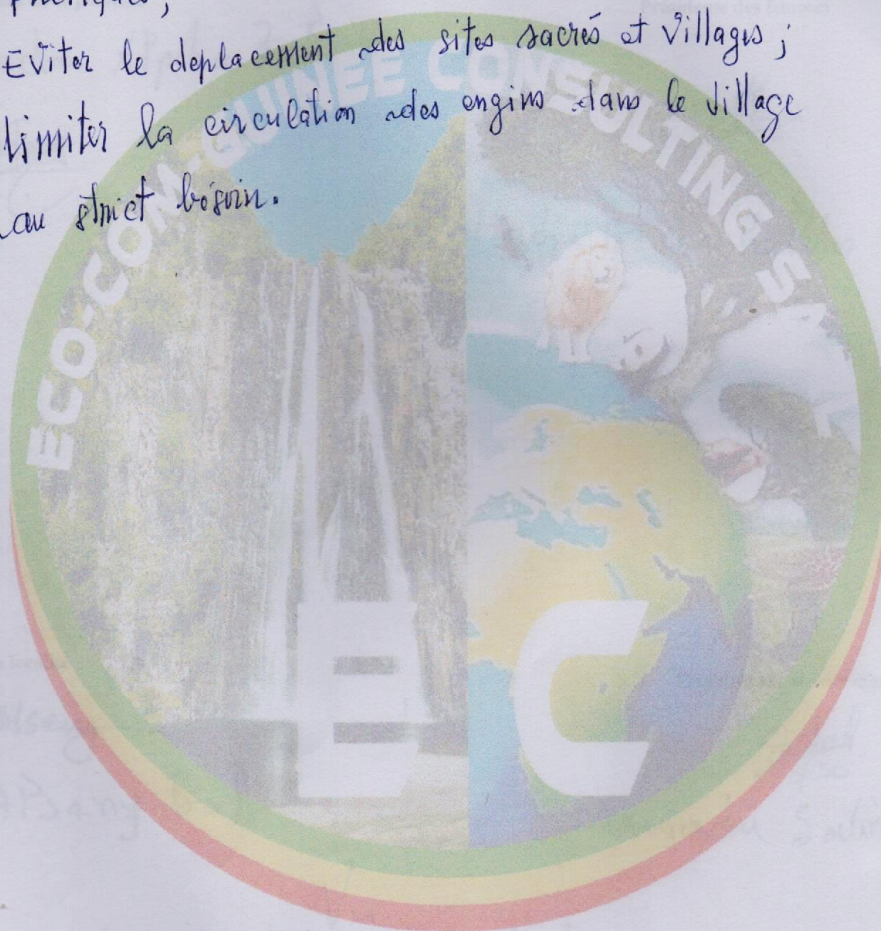 Eviter le deplacement des sites sacrés et villages ;
limiter la circulation des engins dans le village
au strict bésoin.
ECO-COM-GUINEE CONSULTING SA
E C